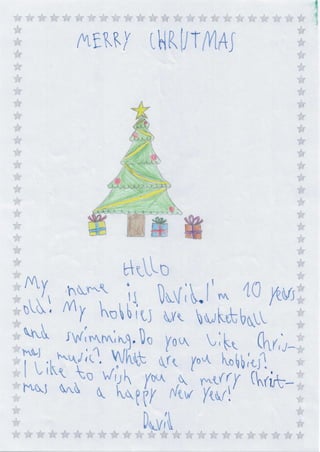 MERRY CHRISTMAS
Hello
My name is David. I'm 10 years
old! My hobbies are basketball
and swimming. Do you like Chris-
mas music? What are you hobbies?
I like to wish you a merry Christ-
mas and a happy New Year!
David